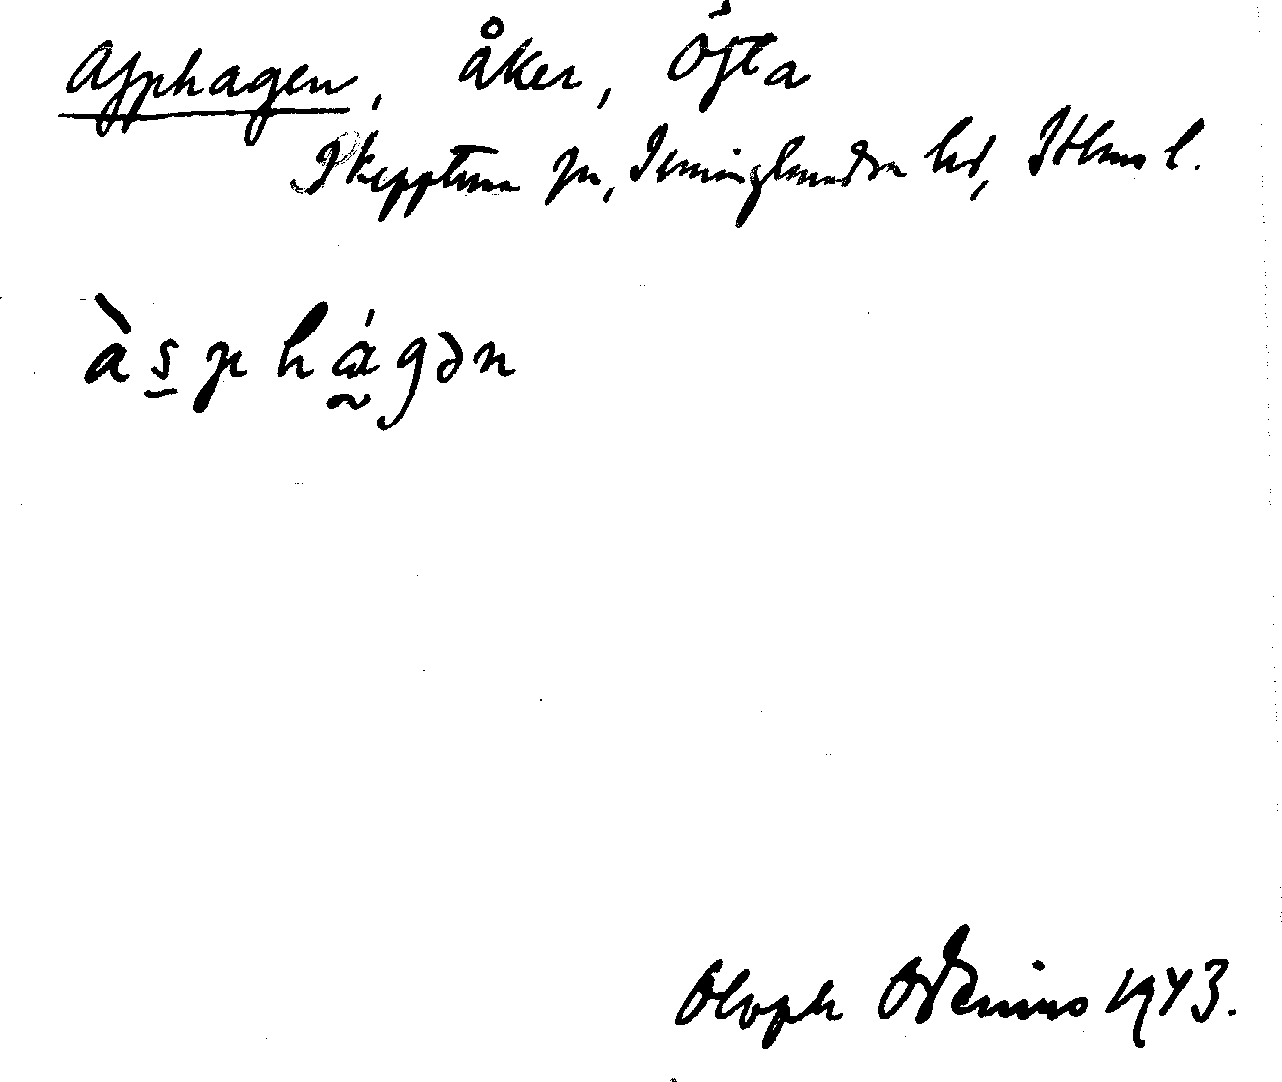 Asphagen, åker, Östa
Skepptuna sn, Seminghundra hd, Sthms l.
àsphágən
Oloph Odenius 1943.